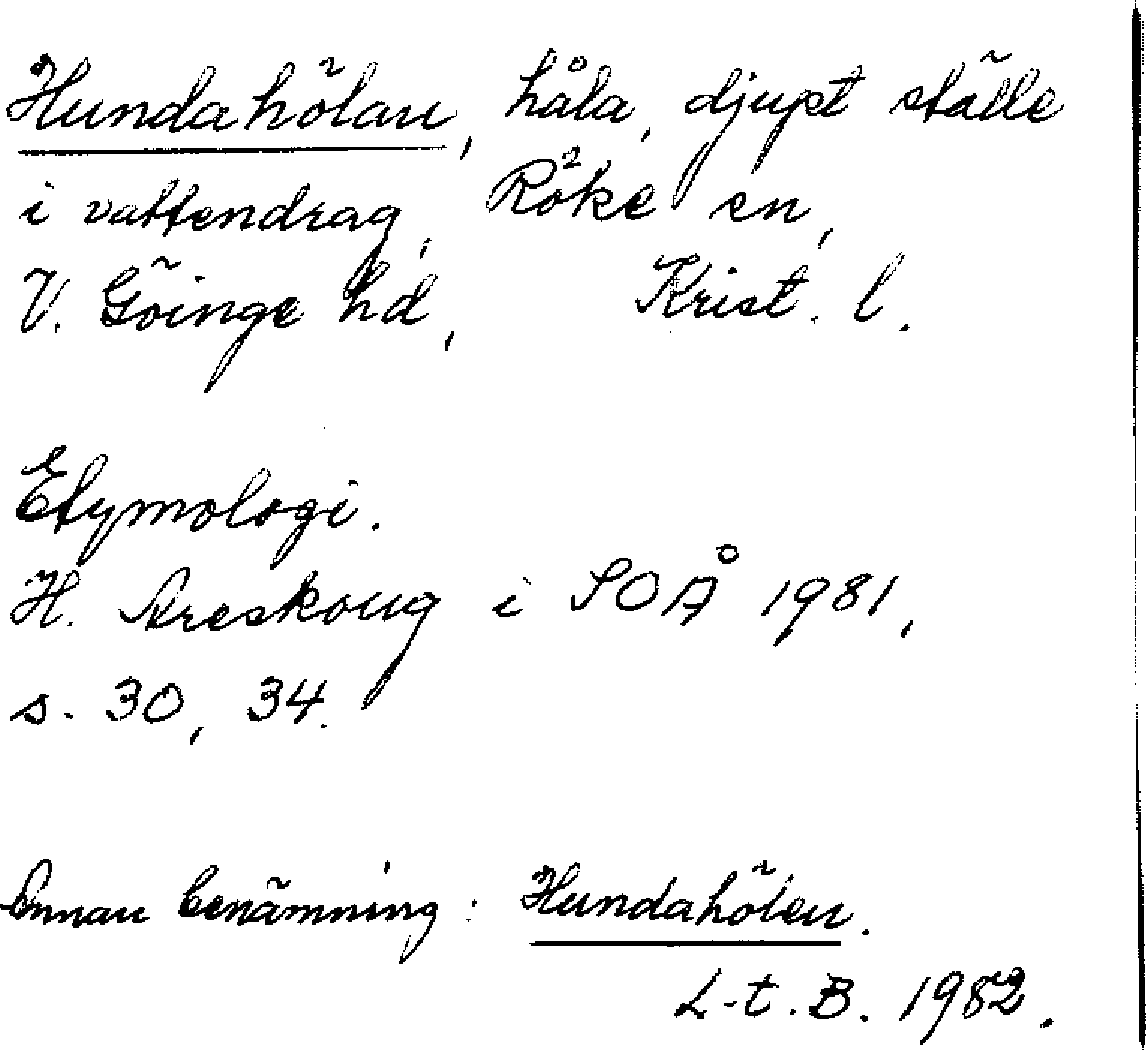 Hundahölan, håla, djupt ställe
i vattendrag, Röke sn,
V. Göinge hd, Krist. l.
Etymologi.
H. Areskoug i SOÅ 1981,
s. 30, 34.
Annan benämning: Hundahölen.
L-t. B. 1982.